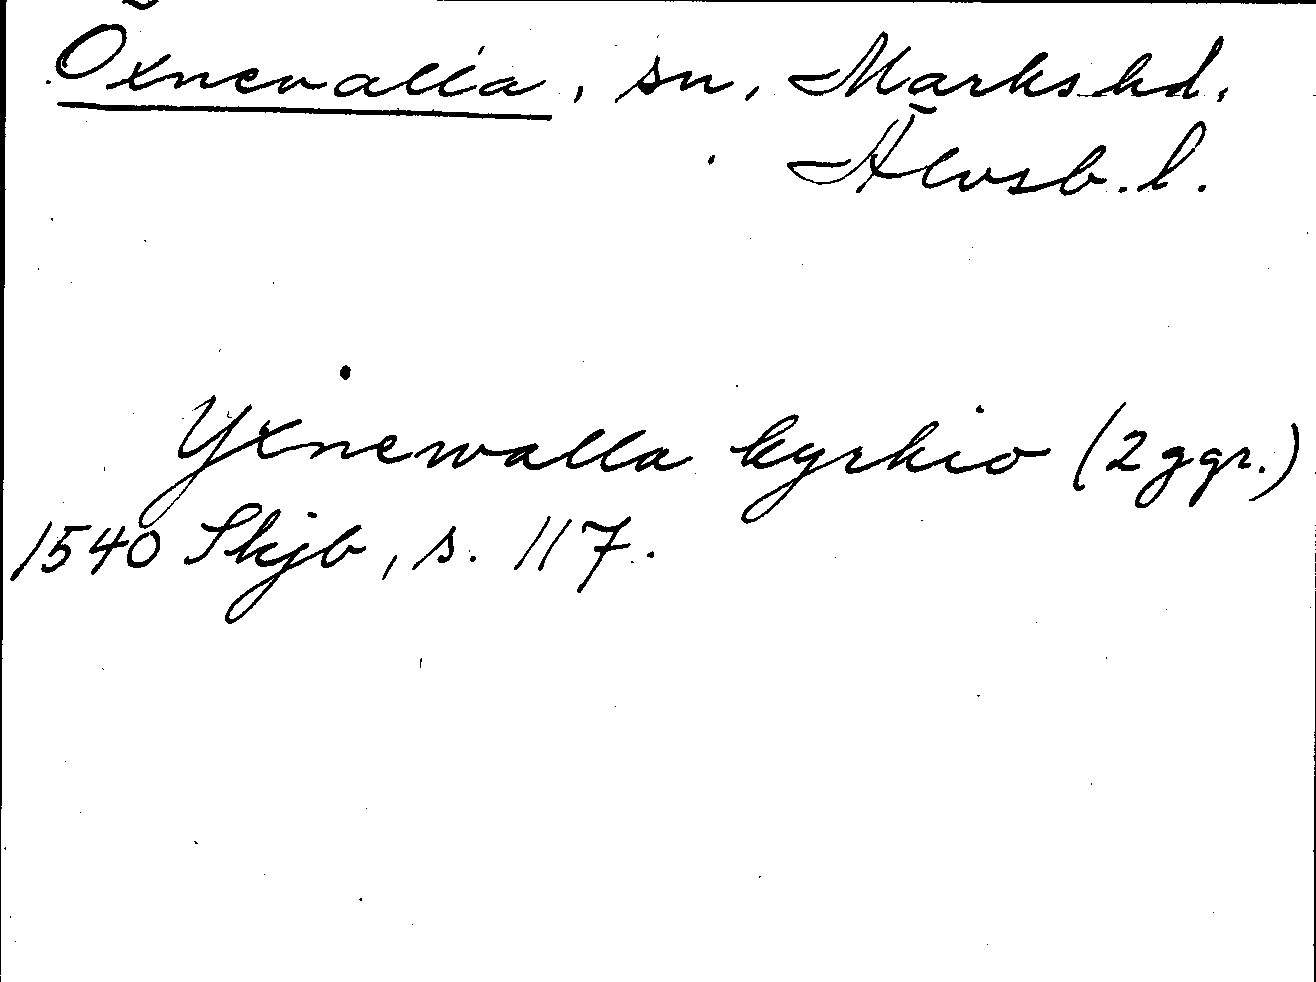 Öxnevalla, sn, Marks hd,
Älvsb. l.
Yxnewalla kyrkio (2 ggr.)
1540 Skjb, s. 117.